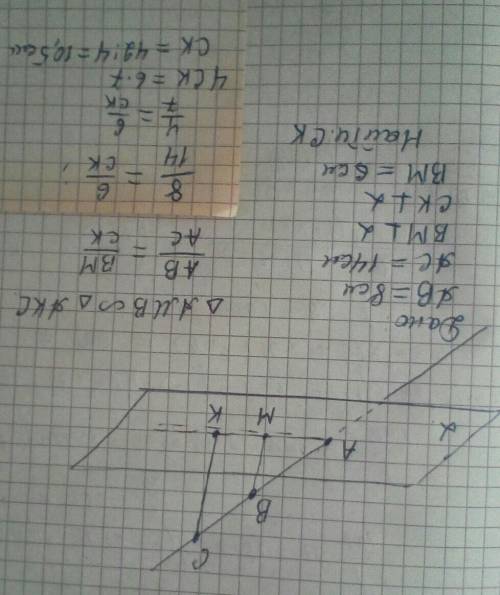 C
B
A
K
M
α
Дано
AB = 8см
AC = 14см
BM ⊥ α
CK ⊥ α
BM = 6см
Найти: CK
△ AMB ∾ △ AKC
AB/AC = BM/CK
8/14 = 6/CK ;
4/7 = 6/CK
4CK = 6·7
CK = 42:4 = 10,5см